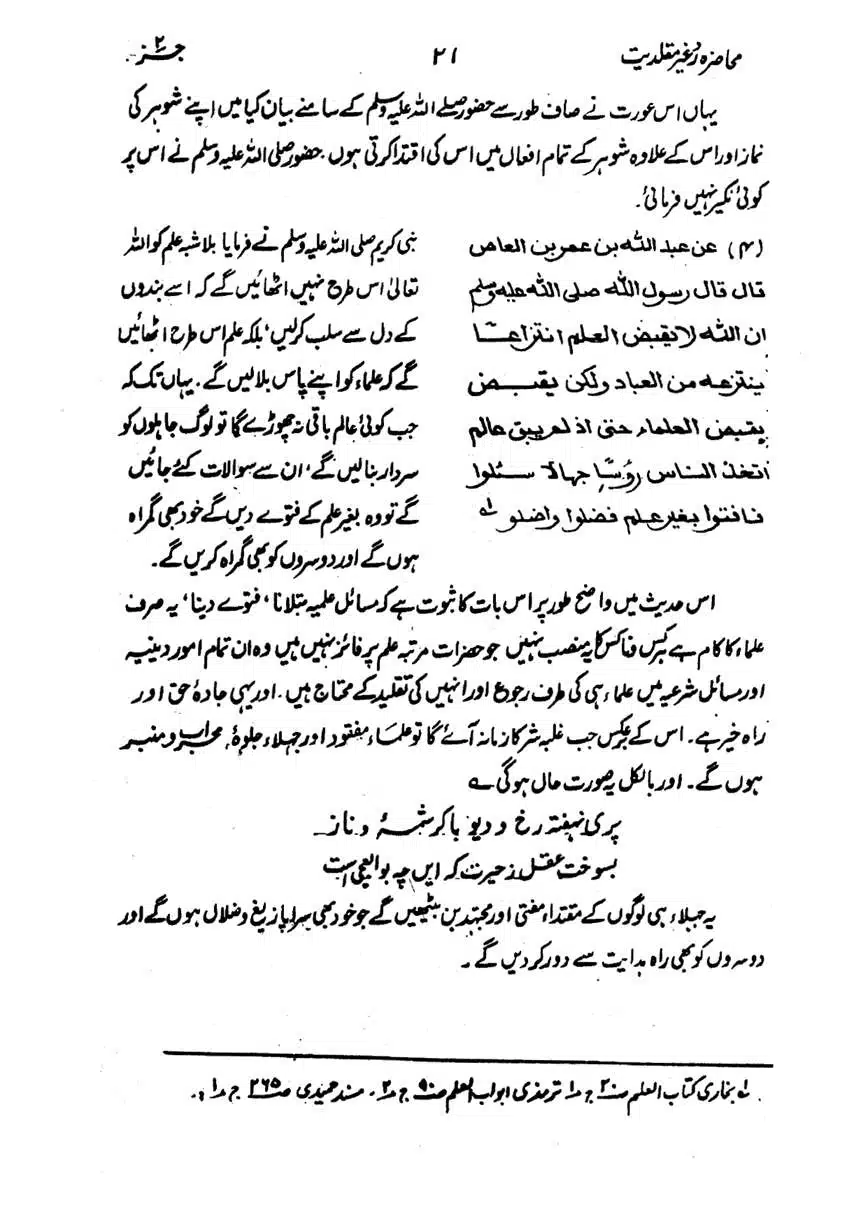 محاضرہ رد غیر مقلدیت ۲۱ جز ۲
یہاں اس عورت نے صاف طور سے حضور صلے اللہ علیہ وسلم کے سامنے بیان کیا میں اپنے شوہر کی
نماز اور اس کے علاوہ شوہر کے تمام افعال میں اس کی اقتدا کرتی ہوں۔ حضور صلی اللہ علیہ وسلم نے اس پر
کوئی نکیر نہیں فرمائی۔
(۴) عن عبد الله بن عمر بن العاص
قال قال رسول الله صلى الله عليه وسلم
ان الله لا يقبض العلم انتزاعًا
ينتزعه من العباد ولكن يقبض
بقبض العلماء حتى اذ لم يبق عالم
اتخذ الناس رؤسًا جهالا سئلوا
فافتوا بغير علم فضلوا واضلو لہ
نبی کریم صلی اللہ علیہ وسلم نے فرمایا بلا شبہ علم کو اللہ
تعالیٰ اس طرح نہیں اٹھائیں گے کہ اسے بندوں
کے دل سے سلب کرلیں، بلکہ علم اس طرح اٹھائیں
گے کہ علماء کو اپنے پاس بلالیں گے۔ یہاں تک کہ
جب کوئی عالم باقی نہ چھوڑے گا تو لوگ جاہلوں کو
سردار بنالیں گے، ان سے سوالات کئے جائیں
گے تو وہ بغیر علم کے فتوے دیں گے خود بھی گمراہ
ہوں گے اور دوسروں کو بھی گمراہ کریں گے۔
اس حدیث میں واضح طور پر اس بات کا ثبوت ہے کہ مسائل علمیہ بتلانا، فتوے دینا، یہ صرف
علماء کا کام ہے کس و ناکس کا یہ منصب نہیں جو حضرات مرتبہ علم پر فائز نہیں ہیں وہ ان تمام امور دینیہ
اور مسائل شرعیہ میں علماء ہی کی طرف رجوع اور انہیں کی تقلید کے محتاج ہیں۔ اور یہی جادۂ حق اور
راہ خیر ہے۔ اس کے برعکس جب غلبہ شر کا زمانہ آئے گا تو علماء مفقود اور جہلاء جلوۂ محراب و منبر
ہوں گے۔ اور بالکل یہ صورت حال ہوگی ؎
پری نہفتہ رخ و دیو با کرشمۂ و ناز
بسوخت عقل ز حیرت کہ ایں چہ بوالعجی است
یہ جہلاء ہی لوگوں کے مقتداء مفتی اور مجتہد بن بیٹھیں گے جو خود بھی سراپا زیغ و ضلال ہوں گے اور
دوسروں کو بھی راہ ہدایت سے دور کردیں گے۔
لہ بخاری کتاب العلم ص۲۰ ج ۱ ترمذی ابواب العلم ص۹۰ ج ۲۔ مسند حمیدی ص۲۶۵ ج ۱